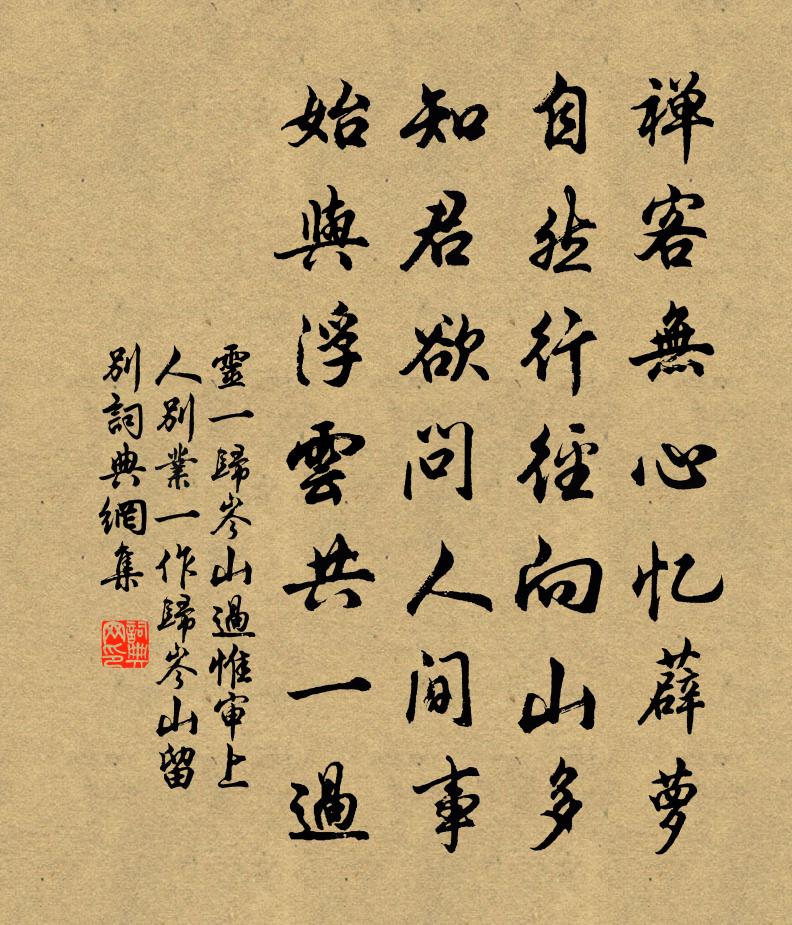 禅客無心忆薜萝
自然行径向山多
知君欲问人间事
始與浮雲共一過
靈一歸岑山過惟审上
人别業一作歸岑山留
别詞典網集
詞典网印